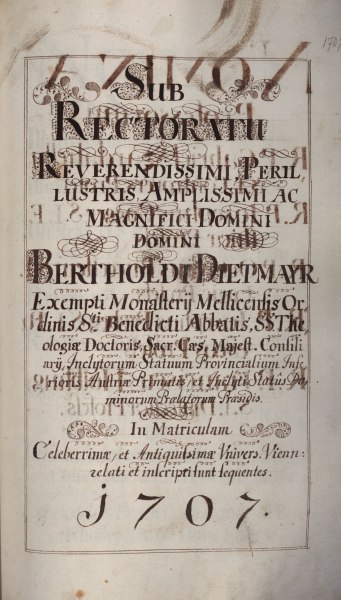 1707
SUB
RECTORATU
REVERENDISSIMI, PERIL,
LUSTRIS, AMPLISSIMI AC
MAGNIFICI DOMINI
DOMINI
BERTHOLDI DIETMAYR
Exempti Monasterij Mellicensis Or,
dinis S:ti Benedicti Abbatis, SS The,
ologiæ Doctoris, Sacr. Cæs. Majest. Consili
arij, Inclytorum Statuum Provincialium Infe,
rioris Austriæ Primatis, et Inclyti Status Do,
minorum Prælatorum Præsidis.
In Matriculam
Celeberrimæ, et Antiquissimæ Vnivers. Vienn:
relati et inscripti sunt sequentes.
1707.